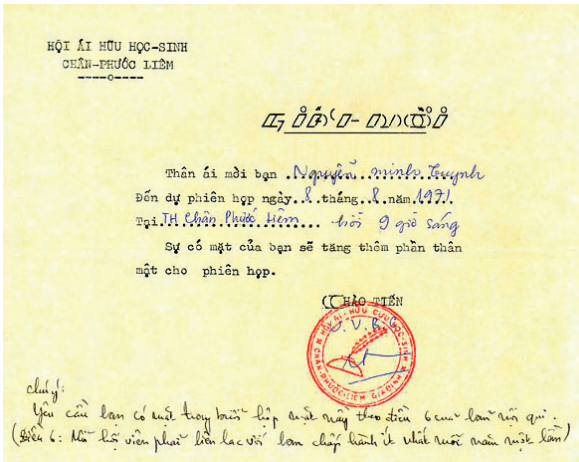 HỘI ÁI HỮU HỌC-SINH
CHÂN-PHƯỚC LIÊM
----o----
GIẤY-MỜI
Thân ái mời bạn Nguyễn minh Huynh
Đến dự phiên họp ngày 8 tháng 8 năm 1971
Tại TH Chân Phước Liêm hồi 9 giờ sáng
Sự có mặt của bạn sẽ tăng thêm phần thân
mật cho phiên họp.
CHÀO TIẾN
HỘI ÁI-HỮU CỰU HỌC-SINH
CHÂN-PHƯỚC-LIÊM GIA ĐỊNH
chú ý:
Yêu cầu bạn có mặt trong buổi họp mặt này theo điều 6 của bản nội qui.
(Điều 6: Mỗi hội viên phải liên lạc với ban chấp hành ít nhất mỗi năm một lần)